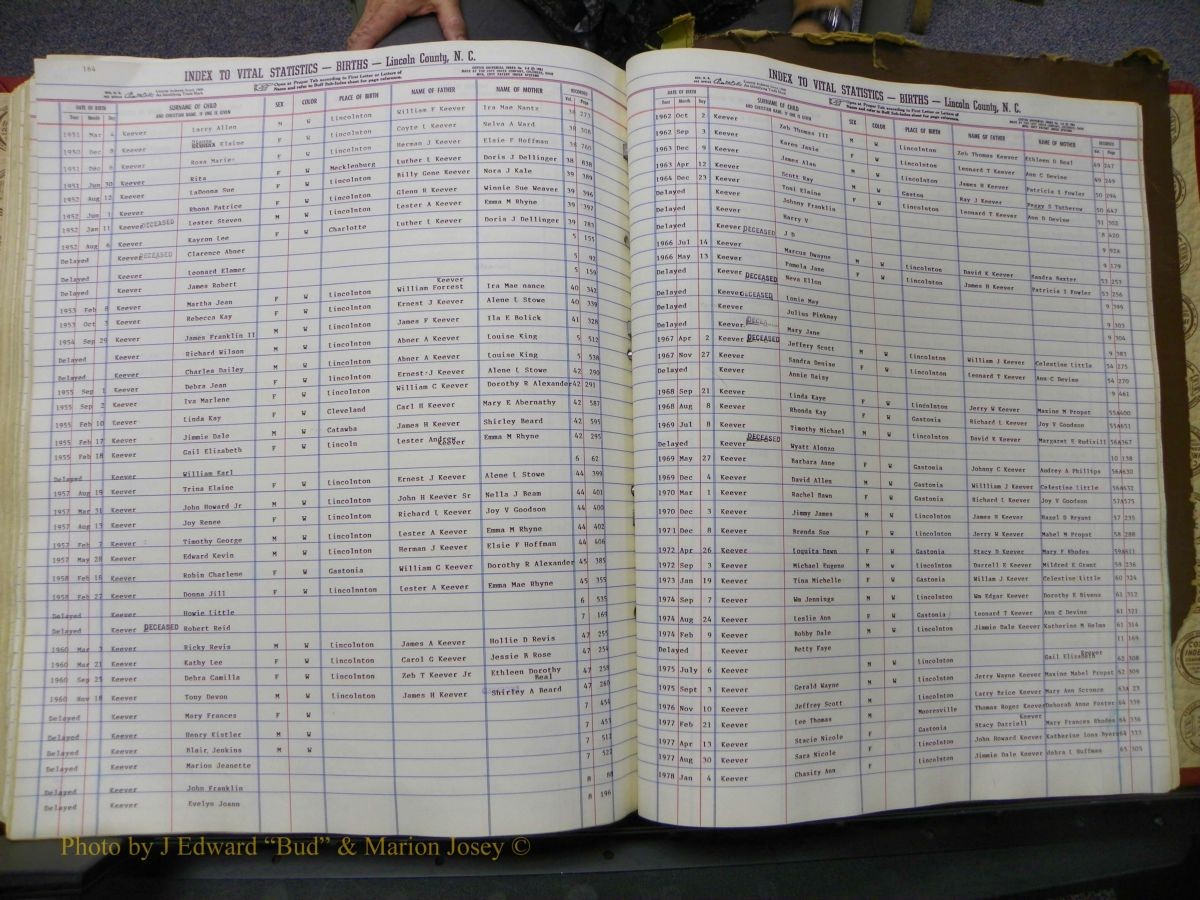 164
INDEX TO VITAL STATISTICS — BIRTHS — Lincoln County, N. C.
DATE OF BIRTH SURNAME OF CHILD SEX COLOR PLACE OF BIRTH NAME OF FATHER NAME OF MOTHER RECORDED
Year Month Day AND CHRISTIAN NAME, IF ONE IS GIVEN Vol. Page
1951 Mar 4 Keever Larry Allen M W Lincolnton William F Keever Ira Mae Nantz 38 273
Keever Elaine Lincolnton Coyte L Keever Nelva A Ward 38 308
Rosa Marie Lincolnton Herman J Keever Elsie F Hoffman 38 760
Keever Rita F W Mecklenburg Luther L Keever Doris J Dellinger 38 838
1952 Aug 12 Keever LaDonna Sue F W Lincolnton Billy Gene Keever Nora J Kale 39 389
Keever Rhona Patrice F W Lincolnton Glenn R Keever Winnie Sue Weaver 39 396
1952 Jan 11 Keever DECEASED Lester Steven M W Lincolnton Lester A Keever Emma M Rhyne 39 397
1952 Aug 6 Keever Kayron Lee F W Charlotte Luther L Keever Doris J Dellinger 39 783
Delayed Keever DECEASED Clarence Abner 5 155
Keever Leonard Elamer 5 92
Delayed Keever James Robert 5 159
1953 Feb 8 Keever Martha Jean F W Lincolnton William Forrest Keever Ira Mae nance 40 342
1953 Oct Keever Rebecca Kay F W Lincolnton Ernest J Keever Alene L Stowe 40 339
1954 Sep 29 Keever James Franklin II M W Lincolnton James F Keever Ila E Bolick 41 328
Delayed Keever Richard Wilson Abner A Keever Louise King 5 512
Delayed Keever Charles Dailey M W Lincolnton Abner A Keever Louise King 5 538
1955 Sep 1 Keever Debra Jean F W Lincolnton Ernest J Keever Alene L Stowe 42 290
1955 Sep 2 Keever Iva Marlene F W Lincolnton William C Keever Dorothy R Alexander 42 291
1955 Feb 10 Keever Linda Kay F W Cleveland Carl H Keever Mary E Abernathy 42 587
1955 Feb 17 Keever Jimmie Dale M W Catawba James H Keever Shirley Beard 42 595
1955 Feb 18 Keever Gail Elizabeth F W Lincoln Lester Andrew Keever Emma M Rhyne 42 295
Delayed Keever William Earl 6 62
1957 Aug 19 Keever Trina Elaine F W Lincolnton Ernest J Keever Alene L Stowe 44 399
1957 Mar 31 Keever John Howard Jr M W Lincolnton John H Keever Sr Nella J Beam 44 401
1957 Aug 13 Keever Joy Renee F W Lincolnton Richard L Keever Joy V Goodson 44 400
1957 Feb 7 Keever Timothy George M W Lincolnton Lester A Keever Emma M Rhyne 44 402
1957 May 28 Keever Edward Kevin M W Lincolnton Herman J Keever Elsie F Hoffman 44 406
1958 Feb 16 Keever Robin Charlene F W Gastonia William C Keever Dorothy R Alexander 45 385
1958 Feb 27 Keever Donna Jill F W Lincolnton Lester A Keever Emma Mae Rhyne 45 355
Delayed Keever Howie Little 6 535
Delayed Keever DECEASED Robert Reid 7 169
1960 Mar 3 Keever Ricky Revis M W Lincolnton James A Keever Hollie D Revis 47 255
1960 Mar 21 Keever Kathy Lee F W Lincolnton Carol G Keever Jessie B Rose 47 254
1960 Sep 25 Keever Debra Camilla F W Lincolnton Zeh T Keever Jr Ethleen Dorothy Beal 47 258
1960 Nov 18 Keever Tony Devon M W Lincolnton James H Keever Shirley A Beard 47 260
Delayed Keever Mary Frances F W 7 454
Delayed Keever Henry Kistler M W 7 453
Delayed Keever Blair Jenkins M W 7 512
Delayed Keever Marion Jeanette 7 522
Delayed Keever John Franklin 8 68
Delayed Keever Evelyn Joann 8 196
INDEX TO VITAL STATISTICS — BIRTHS — Lincoln County, N. C.
DATE OF BIRTH SURNAME OF CHILD SEX COLOR PLACE OF BIRTH NAME OF FATHER NAME OF MOTHER RECORDED
Year Month Day AND CHRISTIAN NAME, IF ONE IS GIVEN Vol. Page
1962 Oct 2 Keever Zeh Thomas III M W Lincolnton Zeh Thomas Keever Ethleen D Beal 49 247
1962 Sep 3 Keever Karen Janie F W Lincolnton Leonard T Keever Ann C Devine 49 249
1963 Dec 9 Keever James Alan M W Lincolnton James H Keever Patricia I Fowler 50 294
1963 Apr 12 Keever Scott Ray M W Gaston Ray J Keever Peggy S Tutherow 50 647
1964 Dec 23 Keever Toni Elaine F W Lincolnton Leonard T Keever Ann D Devine 51 302
Delayed Keever Johnny Franklin 8 420
Delayed Keever Harry V 9 92A
Delayed Keever DECEASED J D 9 179
1966 Jul 14 Keever Marcus Dwayne M W Lincolnton David K Keever Sandra Baxter 53 253
1966 May 13 Keever Pamela Jane F W Lincolnton James H Keever Patricia I Fowler 53 256
Delayed Keever DECEASED Neva Ellen 9 399
Delayed Keever DECEASED Lonie May 9 303
Delayed Keever Julius Pinkney 9 304
Delayed Keever DECEASED Mary Jane 9 383
1967 Apr 2 Keever Jeffery Scott M W Lincolnton William J Keever Celestine Little 54 275
1967 Nov 27 Keever Sandra Denise F W Lincolnton Leonard T Keever Ann C Devine 54 270
Delayed Keever Annie Daisy 9 461
1968 Sep 21 Keever Linda Kaye F W Lincolnton Jerry W Keever Maxine M Propst 55A400
1968 Aug 8 Keever Rhonda Kay F W Gastonia Richard L Keever Joy V Goodson 55A651
1969 Jul 8 Keever Timothy Michael M W Lincolnton David K Keever Margaret E Rudisill 56A367
Delayed Keever DECEASED Wyatt Alonzo 10 138
1969 May 27 Keever Barbara Anne F W Gastonia Johnny C Keever Audrey A Phillips 56A630
1969 Dec 4 Keever David Allen M W Gastonia Willliam J Keever Celestine Little 56A631
1970 Mar 1 Keever Rachel Dawn F W Gastonia Richard L Keever Joy V Goodson 57A575
1970 Dec 3 Keever Jimmy James M W Lincolnton James H Keever Hazel D Bryant 57 235
1971 Dec 8 Keever Brenda Sue F W Lincolnton Jerry W Keever Mabel M Propst 58 288
1972 Apr 26 Keever Loquita Dawn F W Gastonia Stacy D Keever Mary F Rhodes 59A611
1972 Sep 3 Keever Michael Eugene M w Lincolnton Darrell E Keever Mildred K Grant 59 236
1973 Jan 19 Keever Tina Michelle F W Gastonia Willam J Keever Celestine Little 60 324
1974 Sep 7 Keever Wm Jennings M W Lincolnton Wm Edgar Keever Dorothy E Bivens 61 312
1974 Aug 24 Keever Leslie Ann F W Gastonia Leonard T Keever Ann C Devine 61 321
1974 Feb 9 Keever Bobby Dale M W Lincolnton Jimmie Dale Keever Katherine M Helms 61 314
Delayed Keever Betty Faye 11 169
1975 July 6 Keever M W Lincolnton Gail Elizabeth Keever 62 308
1975 Sept 3 Keever Gerald Wayne M W Lincolnton Jerry Wayne Keever Maxine Mabel Propst 62 309
1976 Nov 10 Keever Jeffrey Scott M Mooresville Larry Brice Keever Mary Ann Scronce 63A 23
1977 Feb 21 Keever Lee Thomas M Lincolnton Thomas Roger Keever Deborah Anne Foster 64 338
1977 Apr 13 Keever Stacie Nicole F Gastonia Stacy Darriell Keever Mary Frances Rhodes 64 336
1977 Aug 30 Keever Sara Nicole F Lincolnton John Howard Keever Katherine Iona Byers 64 333
1978 Jan 4 Keever Chasity Ann F Lincolnton Jimmie Dale Keever Debra L Huffman 65 305
Photo by J Edward “Bud” & Marion Josey ©